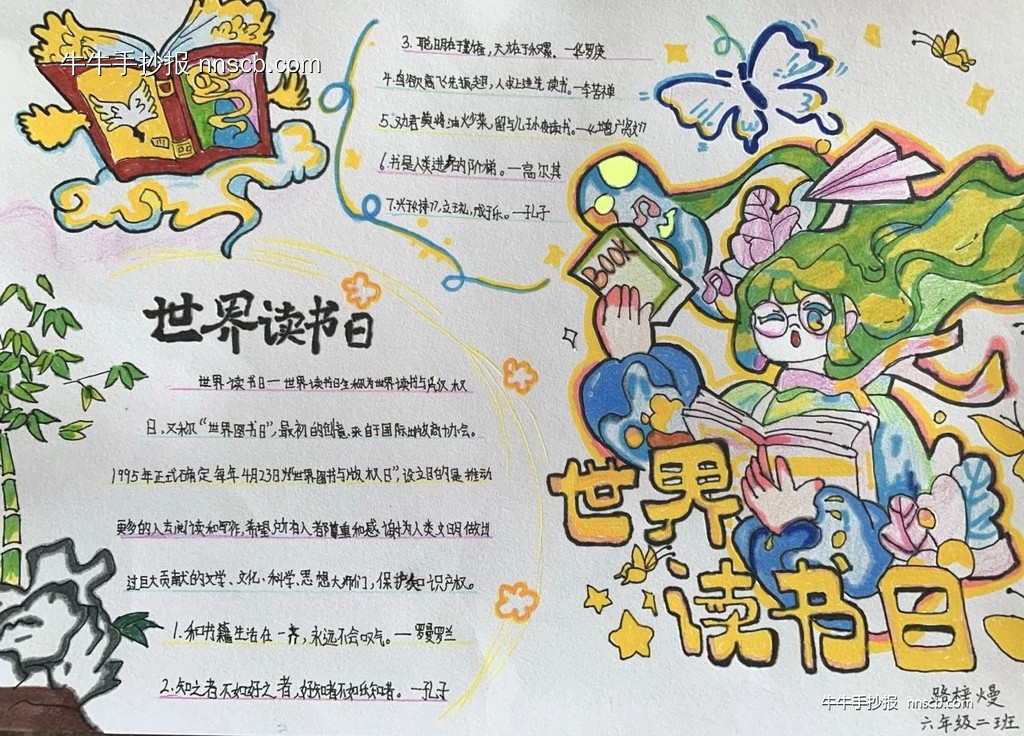 牛牛手抄报 nnscb.com
3. 聪明在于勤奋，天才在于积累。—华罗庚
4. 鸟欲高飞先振翅，人求上进先读书。—李苦禅
5.
6. 书是人类进步的阶梯。—高尔基
7. 兴于诗，立于礼，成于乐。—孔子
BOOK
世界读书日
世界读书日—世界读书日全称为世界读书与版权
日，又称“世界图书日”，最初的创意来自于国际出版商协会。
1995年正式确定每年4月23日为“世界图书与版权日”，设立目的是推动
更多的人去阅读和写作，希望所有人都尊重和感谢为人类文明做出
过巨大贡献的文学、文化、科学、思想大师们，保护知识产权。
1. 和书籍生活在一齐，永远不会叹气。—罗曼罗兰
2. 知之者不如好之者，好知者不如乐知者。—孔子
世界
读书日
牛牛手抄报 nnscb.com
六年级二班